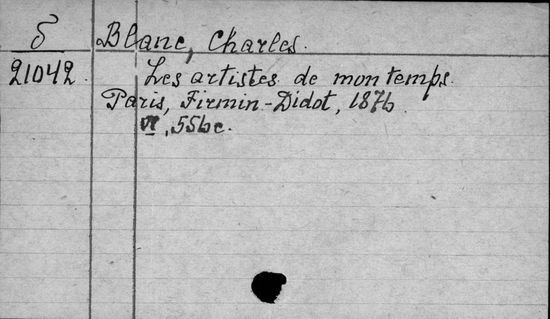 б Blanc, Charles.
21042. Les artistes de mon temps.
Paris, Firmin-Didot, 1876
VI, 556 c.